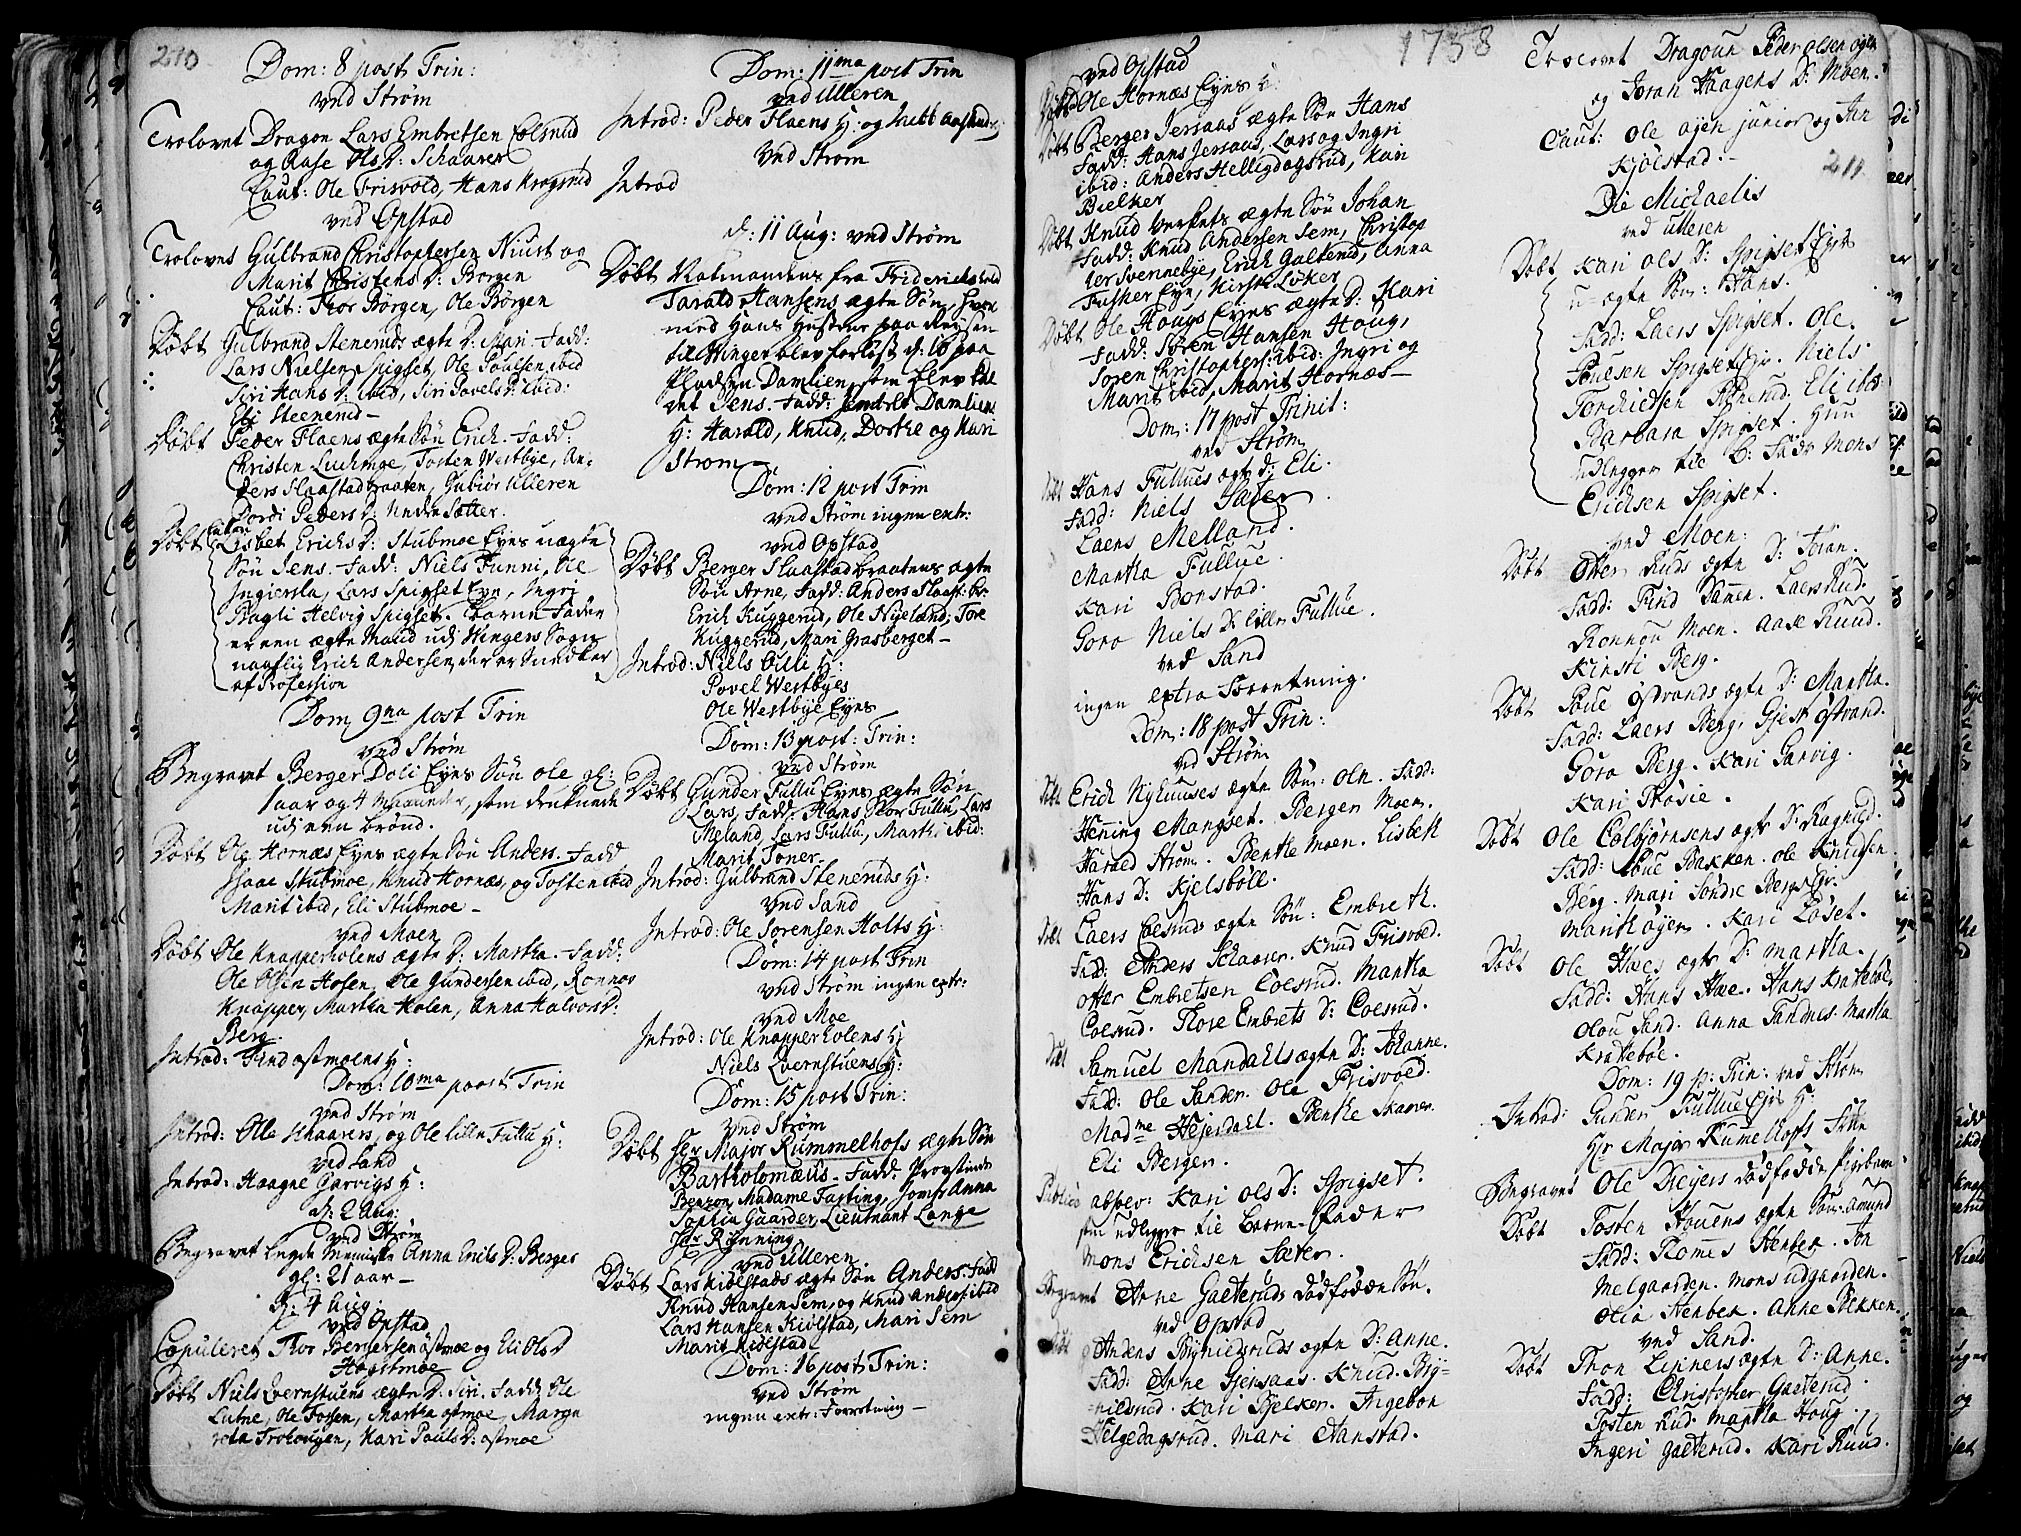 210
Dom: 8 post Trin:
ved Strøm
Trolovet Dragon Lars Embretsen Colsrud
og Aase Ols D: Schaarer
Caut: Ole Frisvold, Hans Krogsrud
ved Opstad
Trolovet Gulbrand Christophersen Niust og
Marit Christens D: Borgen
Caut: Thor Borgen, Ole Borgen
Døbt Gulbrand Stenerüds ægte D: Mari. Fadd:
Lars Nielsen Spigset, Ole Poulsen ibid
Siri Hans D: ibid, Siri Povels D: ibid:
Eli Steenerud -
Døbt Peder Flaens ægte Søn Erich. Fadd:
Christen Tosten Westbye, An-
ders Slaastadbraaten, Gubiør Ulleren
Dordi Peders D: Nedre Sætter.
Døbt Lisbet Erichs D: Stubmoe Eyes uægte
Søn Jens. Fadd: Niels Funni, Ole
Ingiersla, Lars Spigset Eye, Ingri
Helvig Spigset. Barne Fader
er en ægte Mand udi Wingers Sogn
nafnlig Erich Andersen, der er Snedker
af Profession
Dom 9na post Trin
ved Strøm
Begravet Berger Doli Eyes Søn Ole gl:
1 aar og 4 Maaneder, som druknede
udi een brønd.
Døbt Ole Hornæs Eyes ægte Søn Anders. Fadd
Isaac Stubmoe, Knud Hornæs, og Tosten ibid
Marit ibid, Eli Stubmoe -
ved Moen
Døbt Ole Knapperholens ægte D: Martha. Fadd:
Ole Olsen Hosen, Ole Gundersen ibid, Ronnov
Knapper, Martha Holen, Anna Halvors D:
Berg.
Introd: Find Ostmoens H:
Dom: 10ma post Trin
ved Strøm
Introd: Ole Schaarers, og Ole lille Fullu H:
ved Sand
Introd: Haagne Garvigs H:
d: 2 Aug:
ved Strøm
Begravet Anna Erichs D: Berger
gl: 21 aar -
D: 4 Aug:
ved Opstad
Copuleret Thor Bergersen Ostmoe og Eli Ols D
Ostmoe
Døbt Niels Qvernstuens ægte D: Siri. Fadd: Ole
Lutne, Ole Fossen, Martha Ostmoe, Margre
ta Trolougen, Kari Pouls D: Ostmoe
Dom: 11ma post Trin
ved Ulleren
Introd: Peder Flaens H: og
ved Strøm
Introd
d: 11 Aug: ved Strøm
Døbt fra Friderichshald
Tarald Hansens ægte Søn, hvor
med Hans Hustrue paa Reysen
til Winger blev forløst d: 10 paa
Pladsen Damlien, som blev kal
det Jens. Fadd: Damliens
H: Harald, Knud, Dorthe og Kari
Strøm -
Dom: 12 post Trin
ved Strøm ingen extr:
ved Opstad
Døbt Berger Slaastadbraatens ægte
Søn Arne, Fadd: Anders Slaast: br:
Erich Kuggerud, Ole Nyeland, Tore
Kuggerud, Mari Grasberget -
Introd: Niels Culi H:
Povel Westbyes
Ole Westbye Eyes
Dom: 13 post: Trin:
ved Strøm
Døbt Gunder Fullu Eyes ægte Søn
Lars, Fadd: Hans, Peor Fullu, Lars
Meland, Lars Fullu, Marthe ibid:
Marit Toner
Introd: Gulbrand Stenerüds H:
ved Sand
Introd: Ole Sørensen Holts H:
Dom: 14 post Trin
ved Strøm ingen extr:
ved Moe
Introd: Ole Knapperholens H
Niels Qvernstuens H:
Dom: 15 post Trin:
ved Strøm
Døbt Hr Major Rummelhofs ægte Søn
Bartholomæus. Fadd: Provstinde
Benzon, Madame Fasting, Jomfr Anna
Sophia Gaarder, Lieutnant Lange
Hr Rynning
ved Ulleren
Døbt Lars Kiølstads ægte Søn Anders. Fadd
Knud Hansen Sem, og Knud Anders: ibid
Lars Hansen Kiølstad, Mari Sem
Marit Kiølstad
Dom: 16 post Trin:
ved Strøm
ingen extr: Forretning -
1758
ved Opstad
Ole Hornæs Eyes H:
Døbt Berger Jersaas ægte Søn Hans
Fadd: Hans Jersaas, Lars og Ingri
ibid: Anders Helligdagsrud, Kari
Bielker
Døbt Knud Verkets ægte Søn Johan
Fadd: Knud Andersen Sem, Christop
her Svennebye, Erich Galterud, Anna
Fusker Eye, Kirsti Løker
Døbt Ole Hougs Eyes ægte D: Kari
Fadd: Søren Hansen Houg,
Søren Christophers: ibid: Ingri og
Marit ibid, Marit Hornæs -
Dom: 17 post Trinit:
ved Strøm
Døbt Hans Fullues ægte D: Eli.
Fadd: Niels Sæter
Laers Melland.
Martha Fullue.
Kari Borstad.
Goro Niels D: lille Fullue.
ved Sand
ingen extra Forretning.
Dom: 18 post Trin:
ved Strøm
Døbt Erich Nyhuuses ægte Søn: Ole. Fadd:
Hening Mangset. Berger Moen.
Harald Strøm. Benthe Moen. Lisbeth
Hans D: Kjelsbøll.
Døbt Laers Colsruds ægte Søn: Embreth.
Fadd: Anders Schaarer. Knud Frisvold.
Otter Embretsen Coesrud. Martha
Coesrud. Thore Embrets D: Coesrud.
Døbt Samuel Mandahls ægte D: Johanne.
Fadd: Ole Sander. Ole Frisvold.
Madme Hejerdahl. Benthe Skaarer.
Eli Bergen.
Publicè absolv: Kari Ols D: Spigset.
som udlegger til Barne-Fader
Mons Erichsen Sæter.
Begravet Arne Gaeteruds dødfødde Søn.
ved Opstad
Døbt Anders Brynildsruds ægte D: Anne.
Fadd: Arne Gjersaas. Knud Bry-
nildsrud. Kari Bjelker. Ingebor
Helgedagsrud. Mari Aanstad.
Trolovet Dragoun Peder Olsen Ojen
og Joran Haagens D: Moen.
Caut: Ole Ojen junior og Jon
Kjølstad: -
211
Die Michaelis
ved Ulleren
Døbt Kari Ols D: Spigset Eyes
u-ægte Søn: Hans.
Fadd: Laers Spigset. Ole
Pouelsen Spigset Eje. Niels
Torchildsen Rønerud. Eli ibid:
Barbara Spigset. Hun
udlegger til B: Fadr Mons
Erichsen Spigset.
ved Moen:
Døbt Otter Ruds ægte D: Joran.
Fadd: Find Sanen. Laers Rud.
Ronnou Moen. Aase Ruud.
Kirsti Berg.
Døbt Poue Ostvands ægte D: Martha.
Fadd: Laers Berg. Gjest Ostvand.
Goro Berg. Kari Garvig.
Kari Trøsie.
Døbt Ole Colbjørnsens ægte D: Ragnild.
Fadd: Poue Bakken. Ole Knudsen
Berg. Mari Sondre Bergs Ejr.
Marith Ojern. Kari Løset.
Døbt Ole Hoes ægte D: Martha.
Fadd: Hans Hoe. Hans Krattebøe
Olou Sand. Anna Sandnes. Martha
Krattebøe.
Dom: 19 p: Trin: ved Strøm
Introd: Gunder Fullue Ejes H:
Hr Major Rumelhoffs Frue
Begravet Ole Drejers dødfødde Pigebarn
Døbt Tosten Houens ægte Søn: Amund
Fadd: Thomes Stenbek. Jon
Melgaarden. Mons Udgaarden.
Olia Stenbek. Anne Bekken.
ved Sand.
Døbt Thor Linners ægte D: Anne.
Fadd: Christopher Gaeterud
Tosten Rud. Martha Houg.
Ingeri Gaeterud. Kari Ruud.